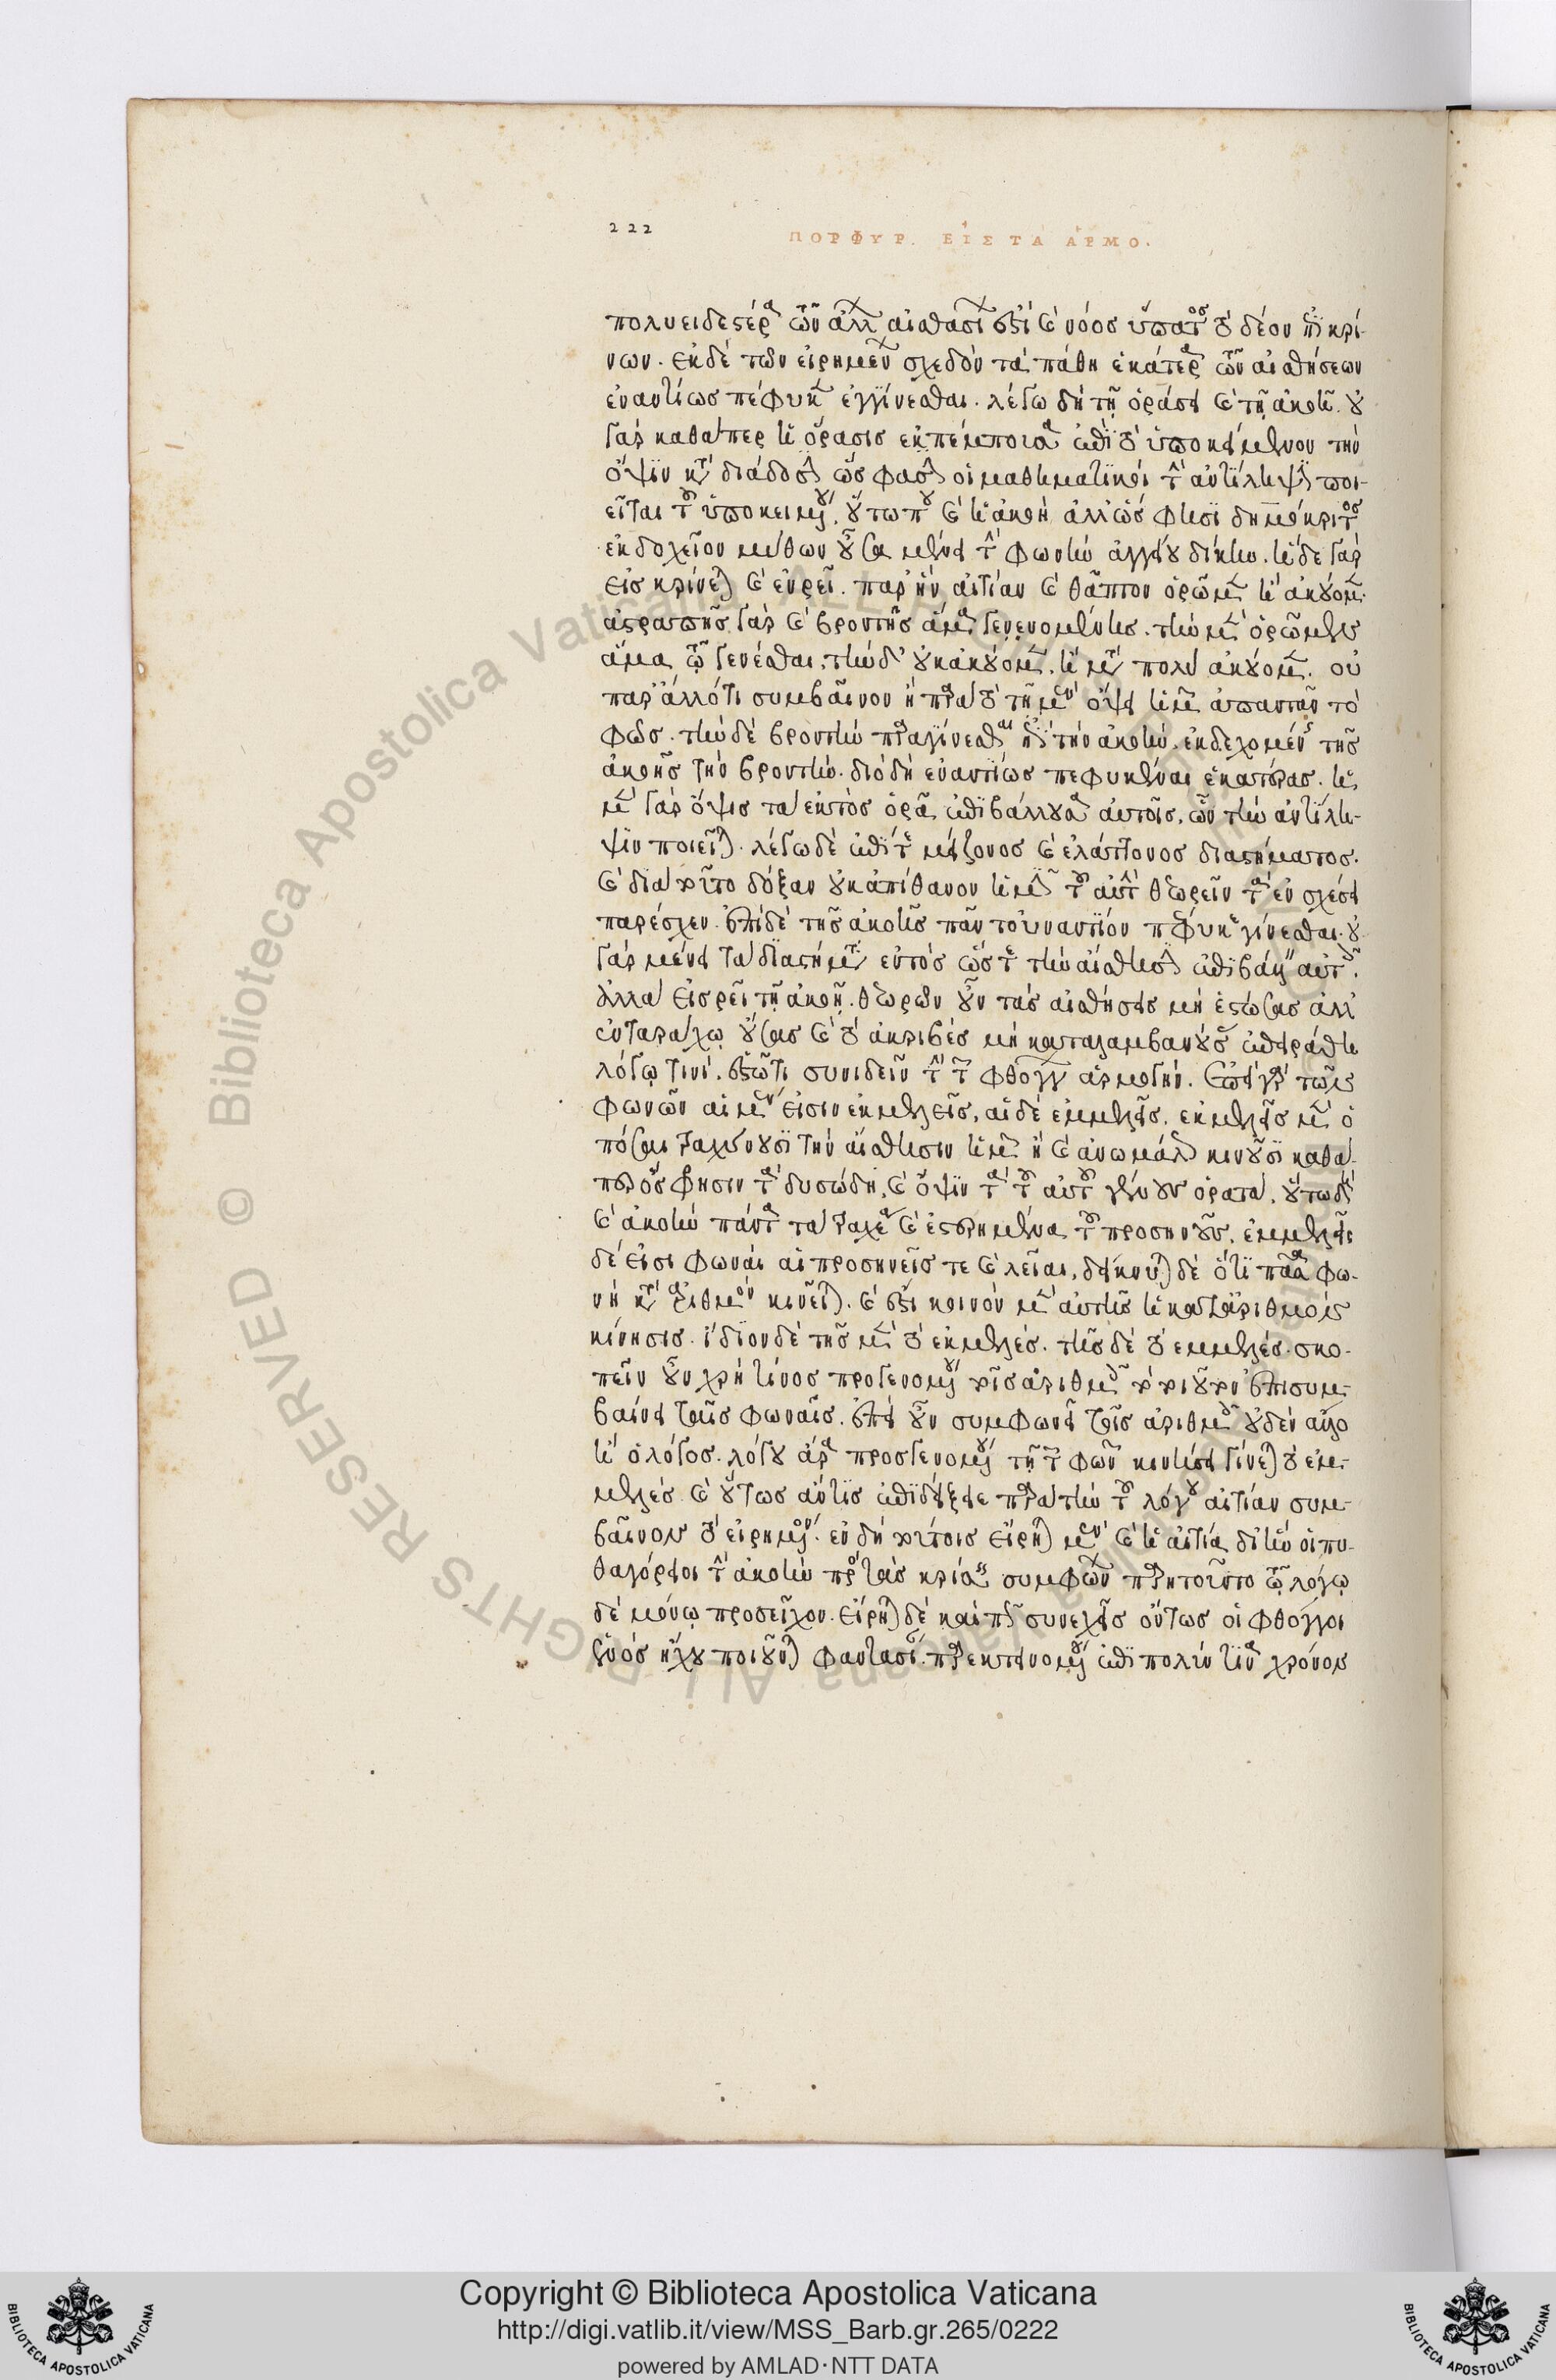 222
ΠΟΡΦΥΡ. ΕΙΣ ΤΑ ΑΡΜΟ.
πολυειδεστέρα τῶν ἄλλων αἰσθήσεων ἐστὶ καὶ νόος ὕπατος τὸ δέον ἐπικρί-
νων. ἐκ δὲ τῶν εἰρημένων σχεδὸν τὰ πάθη ἑκατέρα τῶν αἰσθήσεων
ἐναντίως πέφυκεν ἐγγίνεσθαι. λέγω δὴ τῇ ὁράσει καὶ τῇ ἀκοῇ. οὐ
γὰρ καθάπερ ἡ ὅρασις ἐκπέμπουσα ἐπὶ τὸ ὑποκείμενον τὴν
ὄψιν κατὰ διάδοσιν ὥς φασιν οἱ μαθηματικοὶ τὴν ἀντίληψιν ποι-
εῖται τοῦ ὑποκειμένου. οὕτω που καὶ ἡ ἀκοὴ ἀλλ' ὥς φησι δημόκριτος
ἐκδοχεῖον μύθων οὖσα μένει τὴν φωνὴν ἀγγείου δίκην. ἡ δὲ γὰρ
εἰσκρίνεται καὶ ἐνρεῖ. παρ' ἣν αἰτίαν καὶ θᾶττον ὁρῶμεν ἢ ἀκούομεν.
ἀστραπῆς γὰρ καὶ βροντῆς ἅμα γενενομένης. τὴν μὲν ὁρῶμεν
ἅμα τῷ γενέσθαι. τὴν δ' οὐκ ἀκούομεν. ἢ μετὰ πολὺ ἀκούομεν. οὐ
παρ' ἄλλό τι συμβαῖνον ἢ παρὰ τὸ τῇ μὲν ὄψει ἡμῶν ἀπαντᾶν τὸ
φῶς. τὴν δὲ βροντὴν παραγίνεσθαι ἐπὶ τὴν ἀκοὴν. ἐκδεχομένης τῆς
ἀκοῆς τὴν βροντήν. διὸ δὴ ἐναντίως πεφυκέναι ἑκατέρας. ἡ
μὲν γὰρ ὄψις τὰ ἐκτὸς ὁρᾷ ἐπιβάλλουσα αὐτοῖς. ὧν τὴν ἀντίλη-
ψιν ποιεῖται. λέγω δὲ ἐπὶ τοῦ μείζονος καὶ ἐλάττονος διαστήματος.
καὶ διὰ τοῦτο δόξαν οὐκ ἀπίθανον ἡμῖν τοῦ αὐτὴν θεωρεῖν τὰ ἐν σχέσει
παρέσχεν. ἐπὶ δὲ τῆς ἀκοῆς πᾶν τοὐναντίον πέφυκε γίνεσθαι. οὐ
γὰρ μένει τὰ διαστήματα ἐντὸς ὥστε τὴν αἴσθησιν ἐπιβάλλειν αὐτοῖς.
ἀλλὰ εἰσρεῖ τῇ ἀκοῇ. θεωρῶν οὖν τὰς αἰσθήσεις μὴ ἑστώσας ἀλλ'
ἐν ταραχῳ οὔσας καὶ τὸ ἀκριβὲς μὴ καταλαμβανούσας ἐπειράθη
λόγῳ τινὶ. ἐξ ὅτι συνιδεῖν τὴν τῶν φθόγγων ἁρμογήν. ἐπεὶ γὰρ τῶν
φωνῶν αἱ μὲν εἰσιν ἐκμελεῖς, αἱ δὲ ἐμμελεῖς. ἐκμελεῖς μὲν ὁ
πόσαι ταχύνουσι τὴν αἴσθησιν ἡμῶν ἢ καὶ ἀνωμάλως κινοῦσι καθα-
περ ὄσφρησιν τὰ δυσώδη, καὶ ὄψιν τὰ τοῦ αὐτοῦ γένους ὁρατὰ. οὕτω δὲ
καὶ ἀκοὴν πάντα τὰ τραχέα καὶ ἐστερημένα τοῦ προσηνοῦς. ἐμμελεῖς
δὲ εἰσι φωναὶ αἱ προσηνεῖς τε καὶ λεῖαι, δείκνυται δὲ ὅτι πᾶσα φω-
νὴ κατ' ἀριθμὸν κινεῖται. καὶ ἔστι κοινὸν μὲν αὐτῆς ἡ κατ' ἀριθμοὺς
κίνησις. ἴδιον δὲ τῆς μὲν τὸ ἐκμελές. τῆς δὲ τὸ ἐμμελές. σκο-
πεῖν οὖν χρὴ τίνος προγενομένου τοῖς ἀριθμοῖς τοιοῦτον ἐπισυμ-
βαίνει ταῖς φωναῖς. ἐπεὶ οὖν συμφωνεῖ τοῖς ἀριθμοῖς οὐδὲν ἄλλο
ἢ ὁ λόγος. λόγου ἄρα προσγενομένου τῇ τῶν φωνῶν κινήσει γίνεται τὸ ἐμ-
μελές. καὶ οὕτως αὖτις ἐπιδείξειε παρὰ τὴν τοῦ λόγου αἰτίαν συμ-
βαῖνον τὸ εἰρημένον. ἐν δὴ τούτοις εἴρηται μὲν καὶ ἡ αἰτία δι' ἣν οἱ πυ-
θαγόρειοι τὴν ἀκοὴν πρὸς τὰς κρίσεις συμφώνων παρῃτοῦντο τῷ λόγῳ
δὲ μόνῳ προσεῖχον. εἴρηται δὲ καὶ πῶς συνεχεῖς οὕτως οἱ φθόγγοι
ἑνὸς ἤχου ποιοῦνται φαντασίαν. παρεκτεινομένου ἐπὶ πολύν τινα χρόνον
Copyright © Biblioteca Apostolica Vaticana
http://digi.vatlib.it/view/MSS_Barb.gr.265/0222
powered by AMLAD·NTT DATA